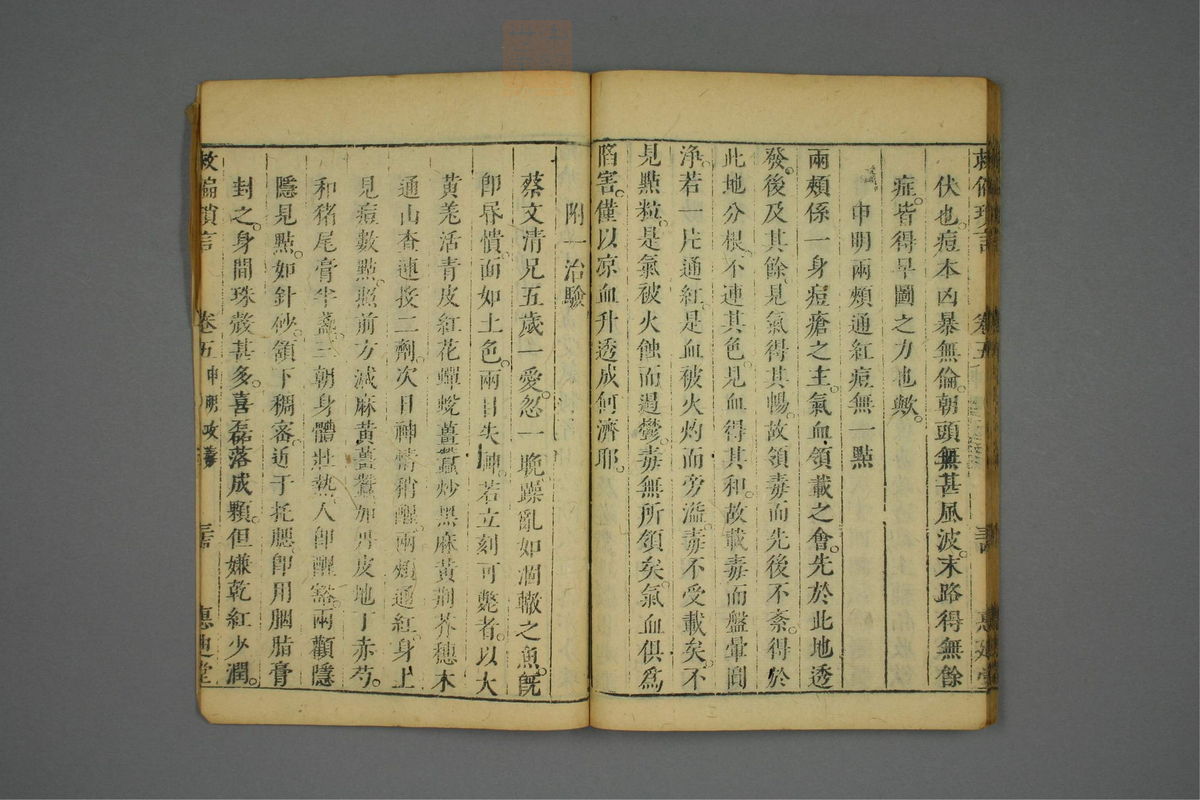 救偏瑣言 卷五
伏也。痘本凶暴無倫。朝頭無甚風波。末路得無餘
症。皆得早圖之力也歟。
申明兩頰通紅痘無一點
兩頰係一身痘瘡之主。氣血領載之會。先於此地透
發。後及其餘。見氣得其暢。故領毒而先後不紊。得於
此地分根。不連其色。見血得其和。故載毒而盤暈圓
淨。若一片通紅。是血被火灼而旁溢。毒不受載矣。不
見點粒。是氣被火蝕而遏鬱。毒無所領矣。氣血俱為
陷害。僅以凉血升透成何濟耶。
附一治驗
蔡文清兄五歲一愛。忽一晚躁亂如涸轍之魚。既
即昏憒。面如土色。兩目失神。若立刻可斃者。以大
黃羗活青皮紅花蟬蛻薑蠶炒黑麻黃荆芥穗木
通山查連投二劑。次日神情稍醒。兩頰通紅。身上
見痘數點。照前方減麻黃薑蠶加丹皮地丁赤芍。
和猪尾膏半盞。三朝身體壯熱。人卽醒豁。兩顴隱
隱見點。如針砂。頷下稠密。近于托腮卽用胭脂膏
封之。身間珠殼甚多。喜磊落成顆。但嫌乾紅少潤。
救偏瑣言 卷五 申明攻毒 惠迪堂